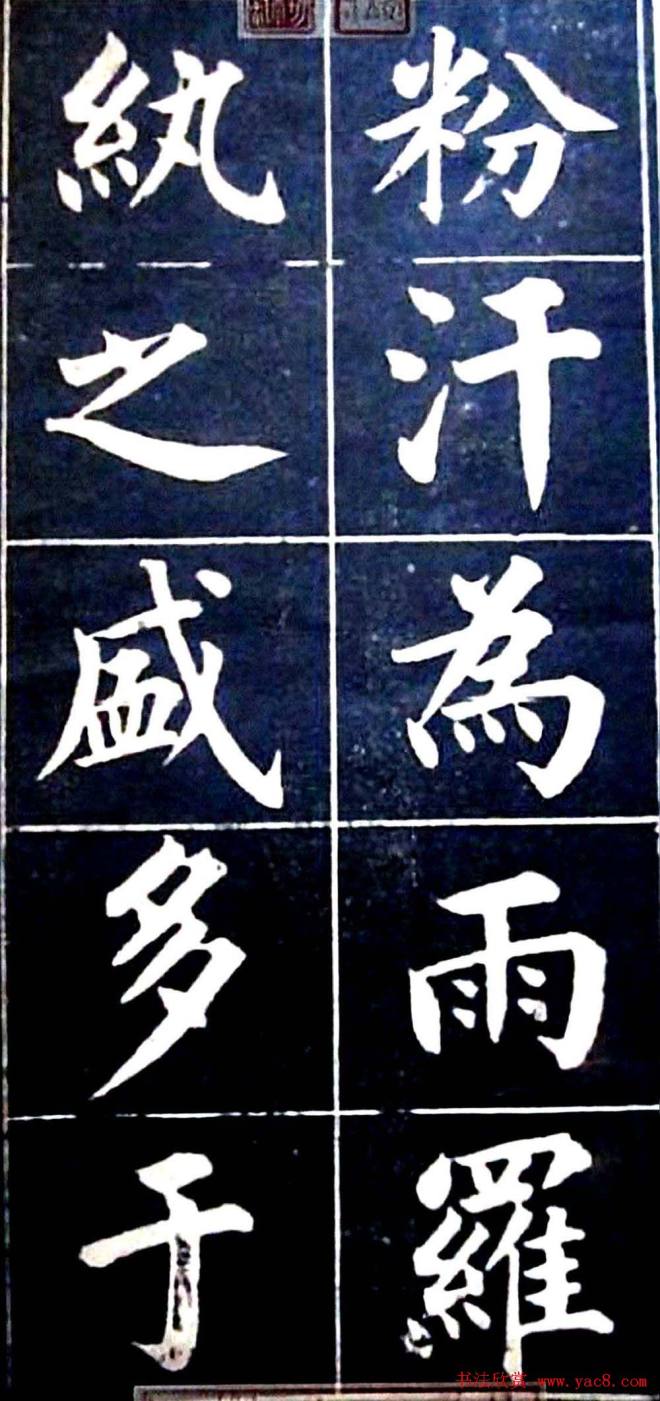 粉汗為雨羅
紈之盛多于
书法欣赏 www.yac8.com